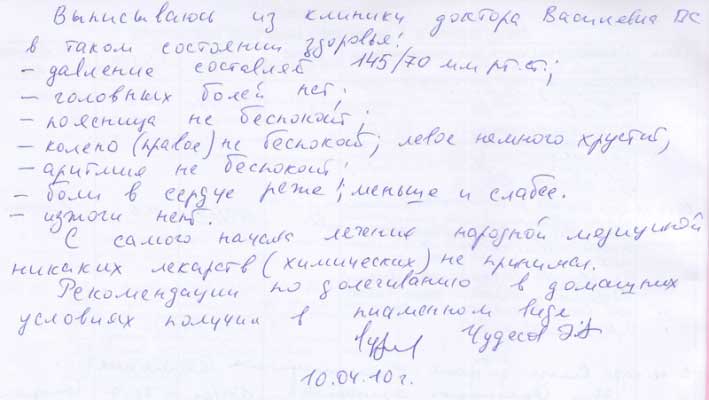 Выписываюсь из клиники доктора Василевича ПС
в таком состоянии здоровья!
– давление составляет 145/70 мм рт.ст.;
– головных болей нет;
– поясница не беспокоит;
– колено (правое) не беспокоит; левое немного хрустит;
– аритмия не беспокоит!
– боли в сердце реже; меньше и слабее.
– изжоги нет.
С самого начала лечения народной медициной
никаких лекарств (химических) не принимал.
Рекомендации по долечиванию в домашних
условиях получил в письменном виде
Чудесов
10.04.10 г.